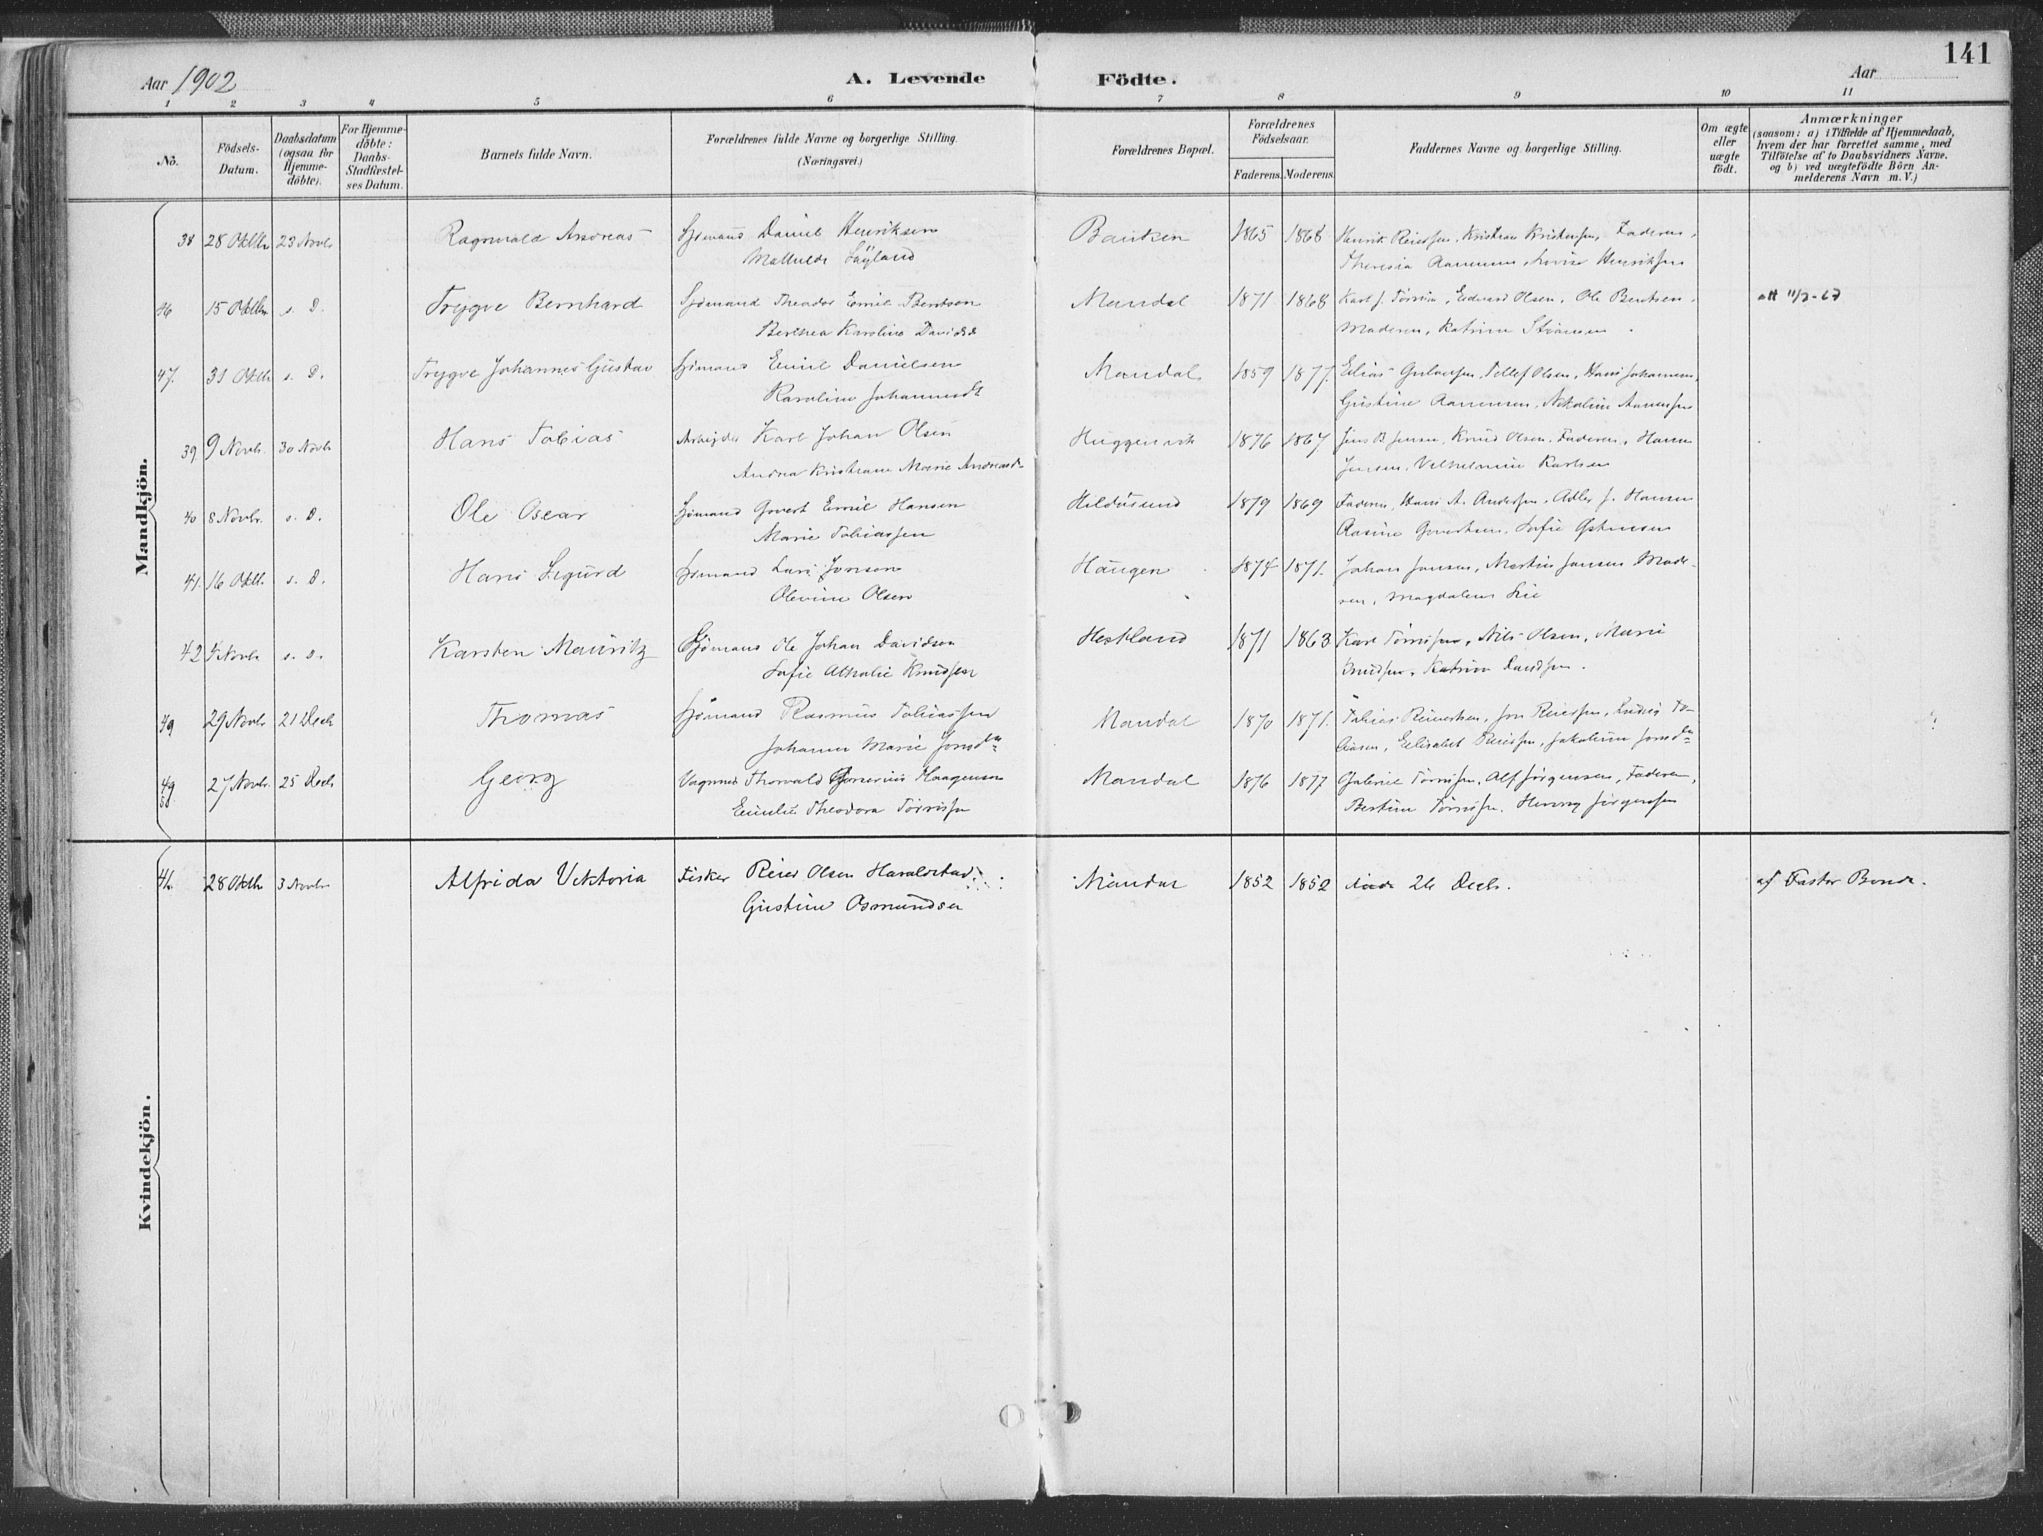 141
Aar 1902 A. Levende Födte. Aar
1 2 3 4 5 6 7 8 9 10 11
No.
Födsels-Datum.
Daabsdatum (ogsaa for Hjemme-döbte).
For Hjemme-döbte: Daabs-Stadfæstel-ses Datum.
Barnets fulde Navn.
Forældrenes fulde Navne og borgerlige Stilling. (Næringsvei.)
Forældrenes Bopæl.
Forældrenes Födselsaar.
Faderens. Moderens.
Faddernes Navne og borgerlige Stilling.
Om ægte eller uægte födt.
Anmærkninger
(saasom: a) i Tilfælde af Hjemmedaab,
hvem der har forrettet samme, med
Tilföielse af to Daabsvidners Navne.
og b) ved uægtefödte Börn An-
melderens Navn m. V.)
Mandkjön.
38 28 Oktbr 23 Novbr Ragnvald Andreas Sjømand Daniel Henriksen Banken 1865 1868 Henrik Reiersen, Kristian Kristensen, Faderen,
Mathilde Løyland Theresia Aanensen, Lovise Henriksen
46 15 Oktbr s. D. Trygve Bernhard Sjømand Theodor Emil Bentsen Mandal 1871 1868 Karl J. Tørrisen, Edvard Olsen, Ole Bentsen, att 11/3-67
Berthea Karoline Davidsd Moderen, Katrine
47. 31 Oktbr s. D. Trygve Johannes Gustav Sjømand Emil Danielsen Mandal 1859 1877. Elias Gulovsen, Tellef Olsen, Hans Johannesen,
Karoline Johannesdt Gustine Aanensen, Nikoline Aanensen
39 9 Novbr. 30 Novbr Hans Tobias Arbejder Karl Johan Olsen 1876 1867. Jens B Jensen, Knud Olsen, Faderen, Hanne
Andrea Kristiane Marie Andreasd Jensen, Vilhelmine Karlsen
40 8 Novbr. s. D. Ole Oscar Sjømand Govert Emil Hansen Hildusund 1879 1869 Faderen, Hans A. Andersen, Adler J. Hansen
Marie Tobiassen Rasine Govertsen, Sofie
41. 16 Oktbr s. D. Hans Sigurd Sjømand Lars Jonson Haugen 1874 1871. Johan Jansen, Martin Jansen Mode-
Olevine Olsen ren, Magdalene Lie
42 4 Novbr s. D. Karsten Mauritz Sjømand Ole Johan Davidsen Hestland 1871 1863 Karl Tørrisen, Nils Olsen, Marie
Sofie Athalie Knudsen Knudsen, Katrine Davidsen.
49 29 Novbr 21 Decb Thomas Sjømand Rasmus Tobiassen Mandal 1870 1871. Tobias Reinertsen, Jon Reiersen, Ludvig To-
Johanne Marie Jonsdtr Elisabet Reiersen, Jakobine Jonsdtr
49 50 27 Novbr. 25 Decb Georg Vognmd Thorvald Haagensen Mandal 1876 1877 Gabriel Tørrisen, Alf Jørgensen, Faderen,
Emilie Theodora Tørrisen Bertine Tørrisen, Henny Jørgensen
Kvindekjön.
41. 28 Oktbr 3 Novbr Alfrida Viktoria Fisker Reier Olsen Haraldstad Mandal 1852 1852 26 Decbr. af Pastor Bonde.
Gustine Osmundsen